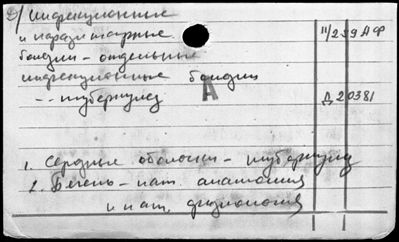 2/ Инфекционные
и паразитарные
болезни - отдельные
инфекционные болезни
-- туберкулез
11/259АФ
А
Д20381
1. Серозные оболочки - туберкулез
2. Печень - пат. анатомия
и пат. физиология